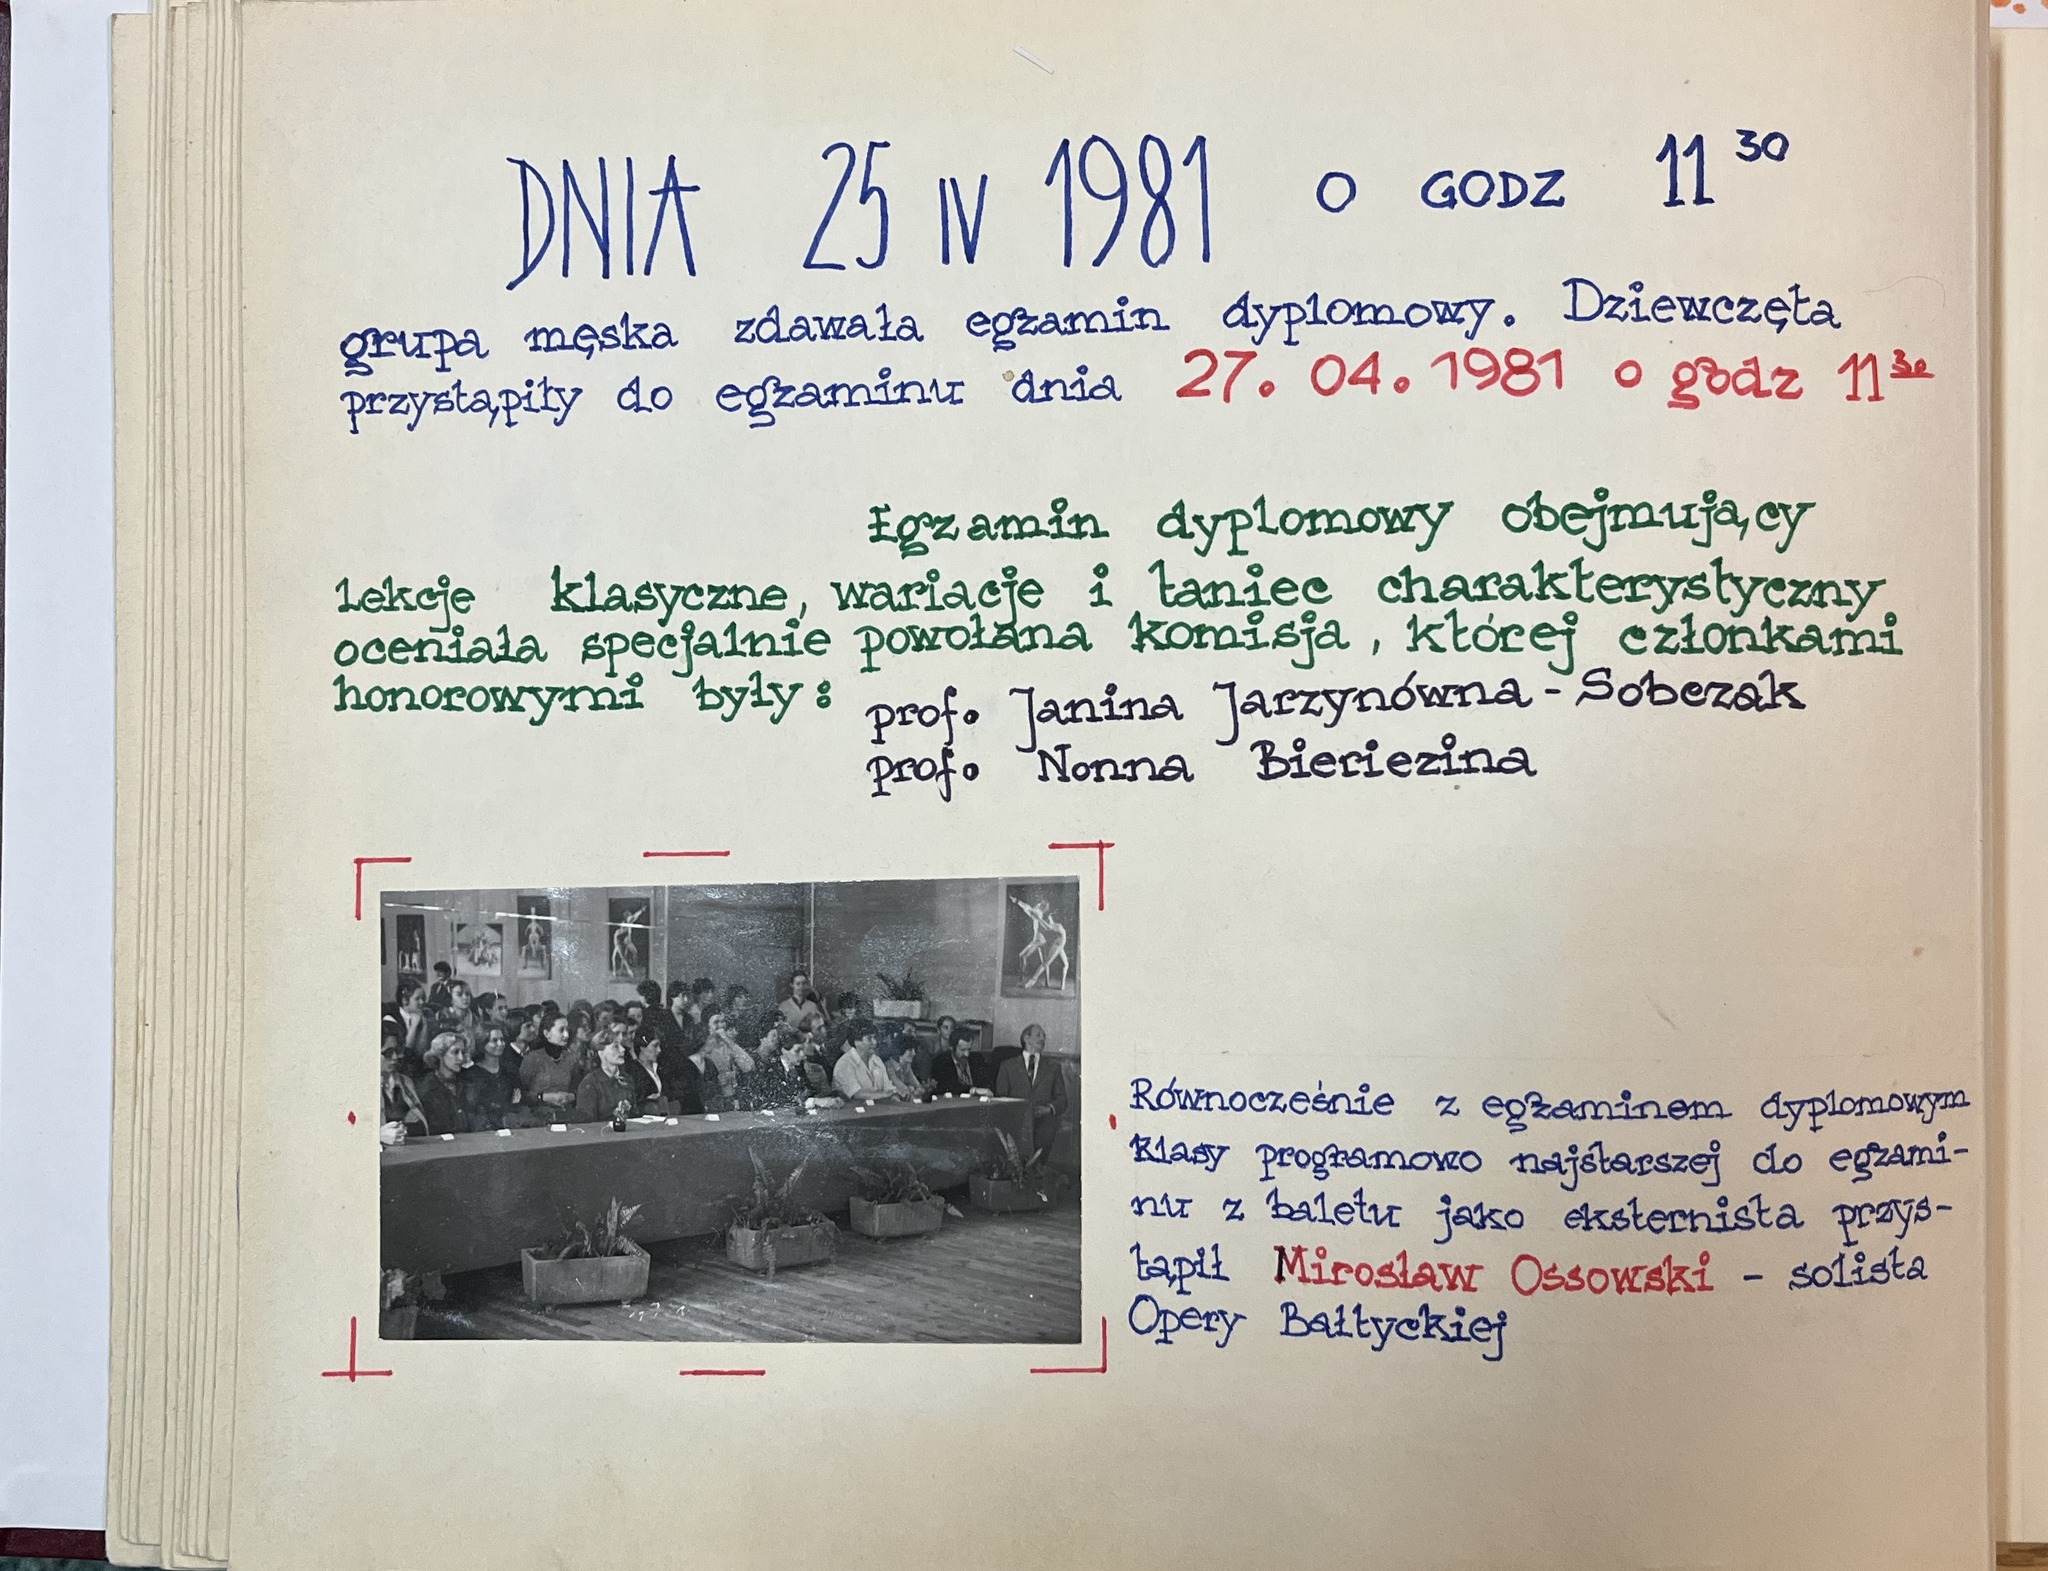 DNIA 25 IV 1981 O GODZ 11 30
grupa męska zdawała egzamin dyplomowy. Dziewczęta
przystąpiły do egzaminu dnia 27. 04. 1981 o godz 11 30
Egzamin dyplomowy obejmujący
lekcje klasyczne, wariacje i taniec charakterystyczny
oceniała specjalnie powołana komisja, której członkami
honorowymi były:
prof. Janina Jarzynówna - Sobczak
prof. Nonna Bieriezina
Równocześnie z egzaminem dyplomowym
klasy programowo najstarszej do egzami-
nu z baletu jako eksternista przys-
tąpił Mirosław Ossowski - solista
Opery Bałtyckiej